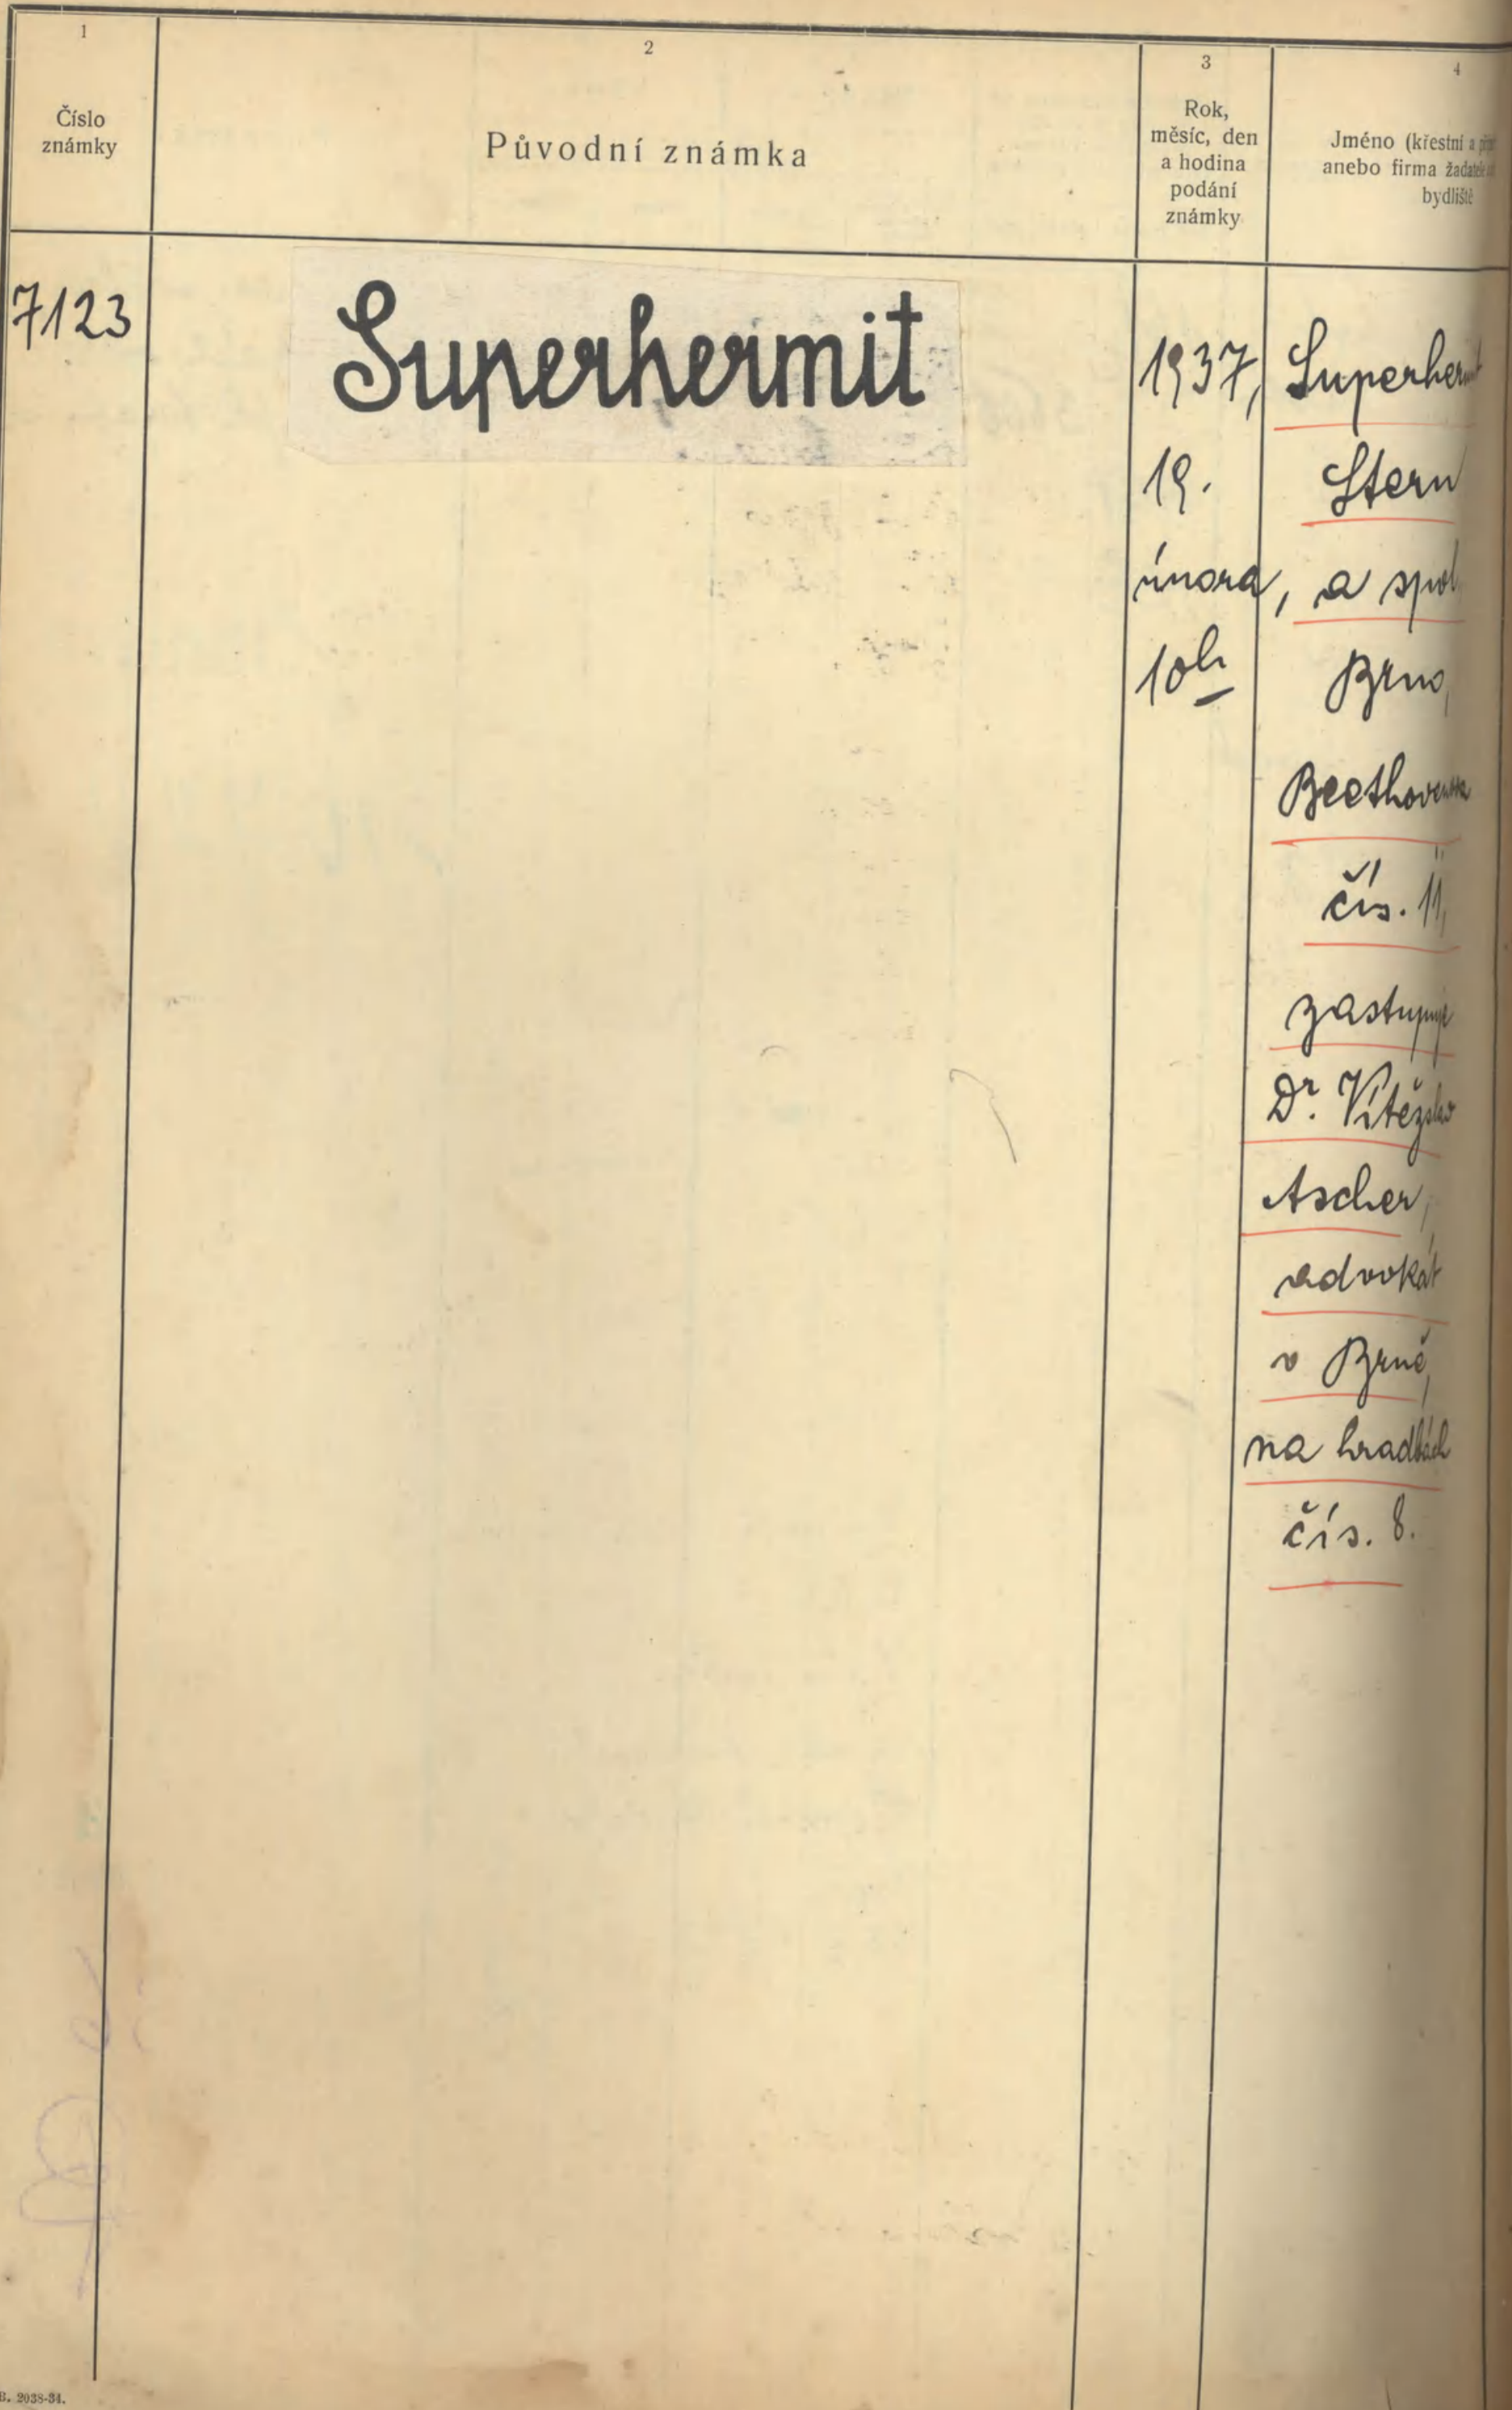 1
Číslo
známky
2
Původní známka
3
Rok,
měsíc, den
a hodina
podání
známky
4
Jméno (křestní a
anebo firma
bydliště
7123
Superhermit
1937,
19.
února,
10h
Superhermit
Stern
a spol
Brno,
čís. 11,
zastupuje
Dr. Vítězslav
Ascher,
advokát
v Brně,
na hradbách
čís. 8.
B. 2038-34.